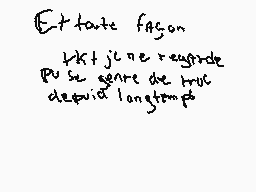 Et toute façon
tkt je ne regarde
pu se genre de truc
depuis longtemps